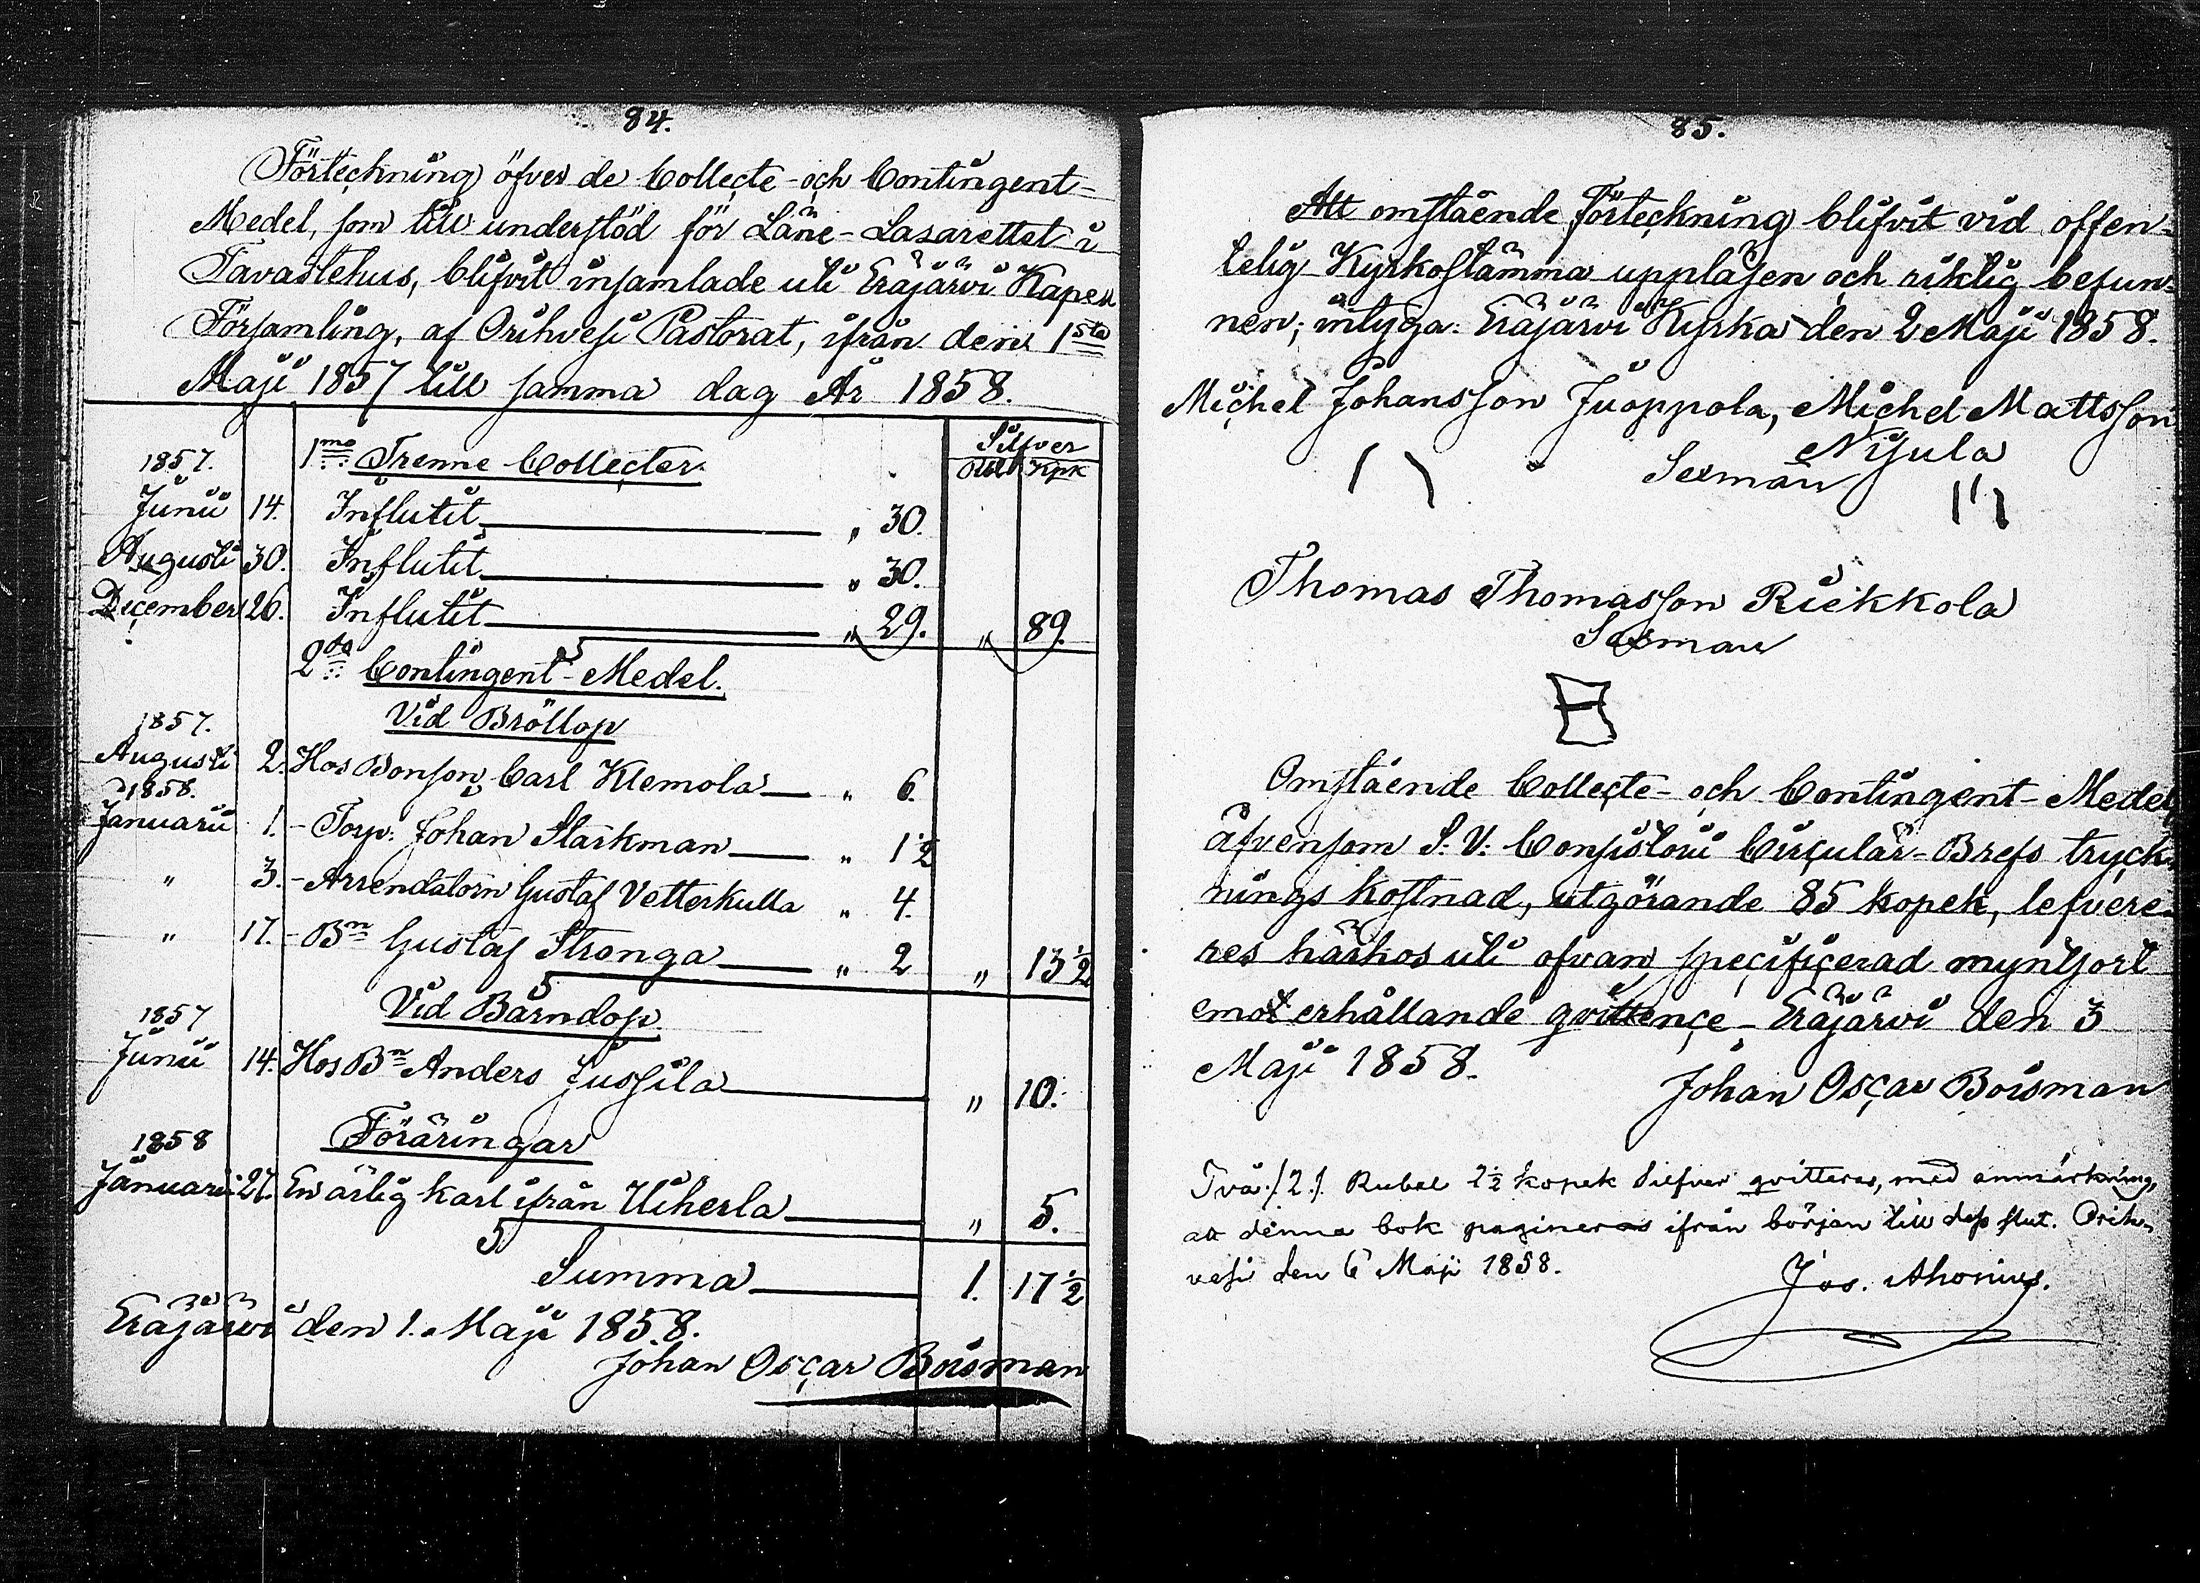 84.
Förteckning öfver de Collecte- och Contingent-
Medel, som till understöd för Läne-Lasarettet i
Tavastehus, blifvit insamlade uti Eräjärvi Kapell
Församling, af Orihvesi Pastorat, ifrån den 1sta
Maji 1857 till samma dag År 1858.
Silfver
1857. 1mo Trenne Collecter. Rbl Kpk
Junii 14. Influtit " 30.
Augusti 30. Influtit " 30.
December 26. Influtit " 29. " 89.
2do Contingent-Medel.
Vid Bröllop
1857.
Augusti 2. Hos Bonson Carl Klemola " 6.
1858.
Januarii 1. - Torp: Johan Starkman " 1 1/2
" 3. - Arrendatorn Gustaf Vetterkulla " 4.
" 17. - Bn Gustaf Stronga " 2 " 13 1/2
Vid Barndop
1857
Junii 14. Hos Bn Anders Jussila " 10.
Föräringar
1858
Januarii 27. En ärlig karl ifrån Uiherla " 5.
Summa 1. 17 1/2
Eräjärvi den 1. Maji 1858.
Johan Oscar Boisman
85.
Att omstående Förteckning blifvit vid offen-
telig Kyrkostämma uppläsen och riktig befun-
nen; intyga. Eräjärvi Kyrka den 2 Maji 1858.
Michel Johansson Juoppola, Michel Mattsson
Nisula
Sexman
Thomas Thomasson Riekkola
Sexman
Omstående Collecte- och Contingent-Medel,
äfvensom S. V. Consistorii Circulär-Brefs tryck-
nings kostnad, utgörande 85 kopek, lefvere-
res härhos uti ofvan specificerad myntsort
emot erhållande qvittence. Eräjärvi den 3
Maji 1858.
Johan Oscar Boisman
Två /2/ Rubel 2 1/2 kopek Silfver qvitteras, med anmärkning,
att denna bok pagineras ifrån början till dess slut. Orih-
vesi den 6 Maji 1858.
Jos. Ahonius.